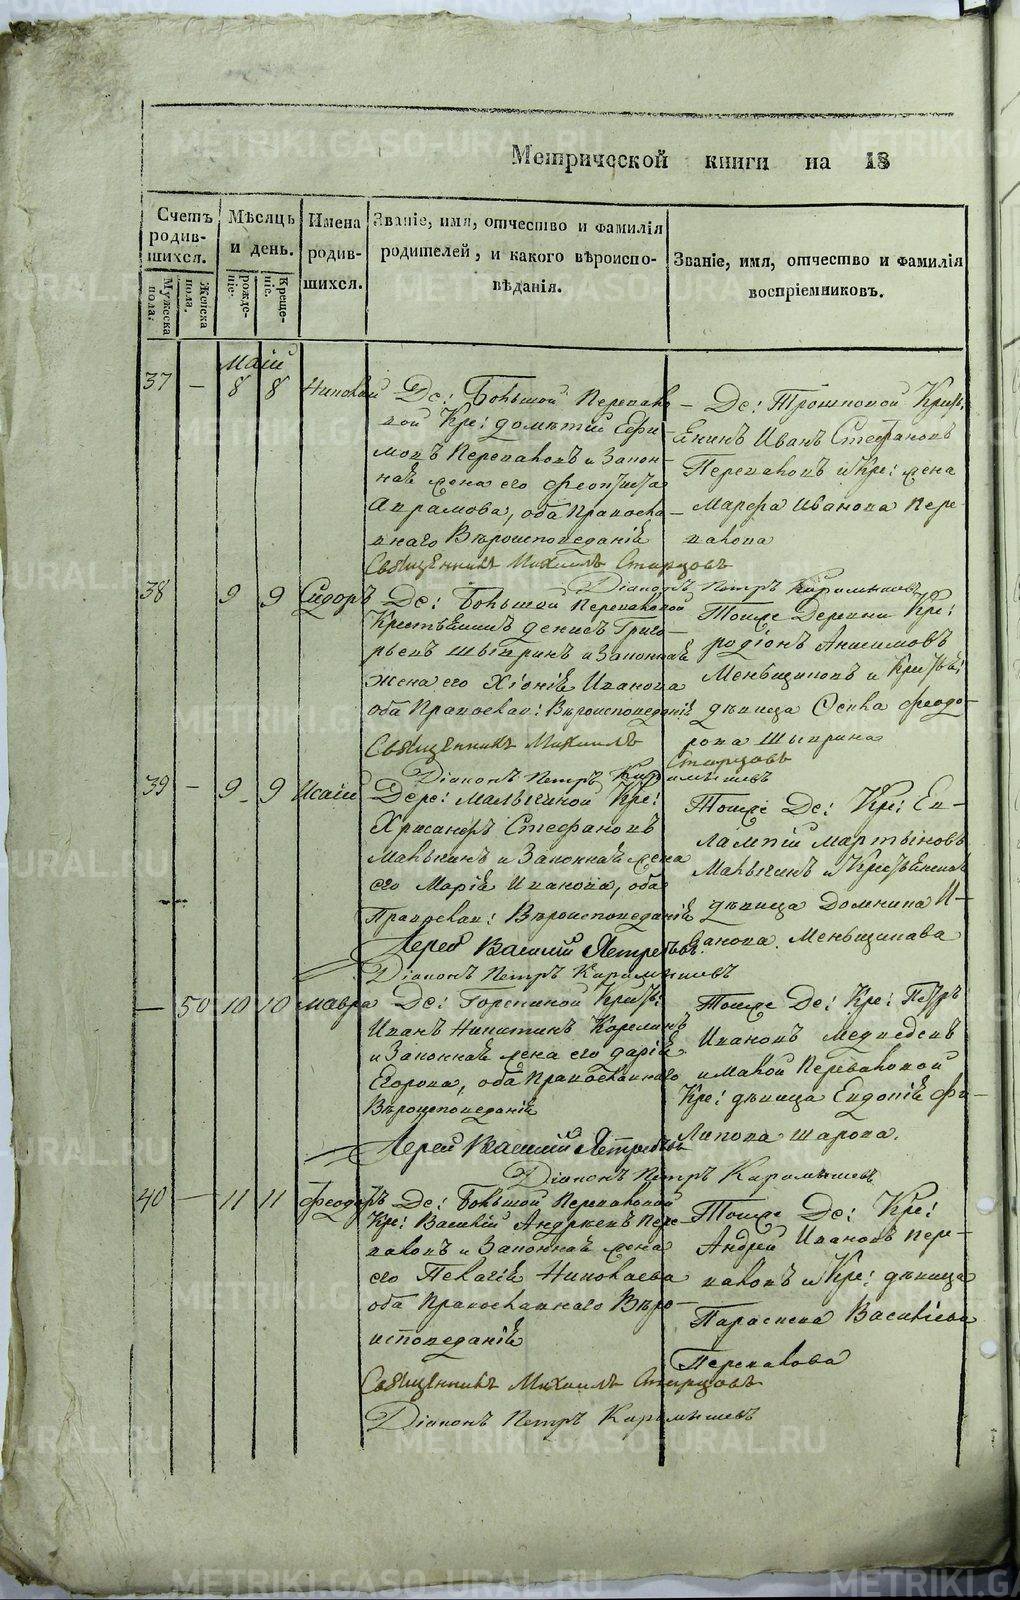 Метрической книги на 18
Счетъ родив-шихся.
Мужеска пола.
Женска пола.
Мѣсяцъ и день.
рожде-ніе.
Креще-ніе.
Имена родив-шихся.
Званіе, имя, отчество и фамилія
родителей, и какого вѣроиспо-
вѣданія.
Званіе, имя, отчество и фамилія
воспріемниковъ.
Маій
37 — 8 8 Николай
Де: Большой Перевало
вой Кре:
мовъ Переваловъ и Закон-
ная жена его
Аврамова, оба Правосла-
внаго Вѣроисповеданія
Священникъ Михаилъ Старцовъ
Діаконъ Петръ Карамышевъ
Де: Трошковой Крест:
Иванъ Стефановъ
Переваловъ и Кре: жена
Марфа Иванова Пере-
валова
38 9 9 Сидоръ
Де: Большой Переваловой
Крестьянинъ Денисъ Григо-
рьевъ Шыпринъ и Законная
жена его Хіонія Иванова
оба Православ: Вѣроисповеданія
Священникъ Михаилъ
Старцовъ
Діаконъ Петръ Карамышевъ
Тойже Деревни Кре:
Родіонъ Анисимовъ
Меньщиковъ и
дѣвица Фекла Феодо-
рова Шыприна
39 — 9 9 Исаія
Дере: Малыгиной Кре:
Хрисанфъ Стефановъ
Малыгинъ и Законная жена
его Марія Иванова, оба
Православ: Вѣроисповеданія
Іерей Василій Ястребовъ.
Діаконъ Петръ Карамышевъ
Тойже Де: Кре: Ев-
лампій Мартыновъ
Малыгинъ и
дѣвица Домнина И-
ванова. Меньщикава
— 50 10 10 Мавра
Де: Горскиной
Иванъ Никитинъ Корелинъ
и Законная жена его Дарія
Егорова, оба Православнаго
Вѣроисповеданія
Іерей Василій Ястребовъ
Діаконъ Петръ Карамышевъ
Тойже Де: Кре: Петръ
Ивановъ Медведевъ
и Малой Переваловой
Кре: дѣвица Евдокія Фи-
липова Шарова.
40 — 11 11 Феодоръ
Де: Большой Переваловой
Кре: Василій Андреевъ Пере-
валовъ и Законная жена
его Пелагія Николаева
оба Православнаго Вѣро-
исповеданія
Священникъ Михаилъ Старцовъ
Діаконъ Петръ Карамышевъ
Тойже Де: Кре:
Андрей Ивановъ Пере-
валовъ и Кре: дѣвица
Параскева Василіева
Перевалова
METRIKI.GASO-URAL.RU